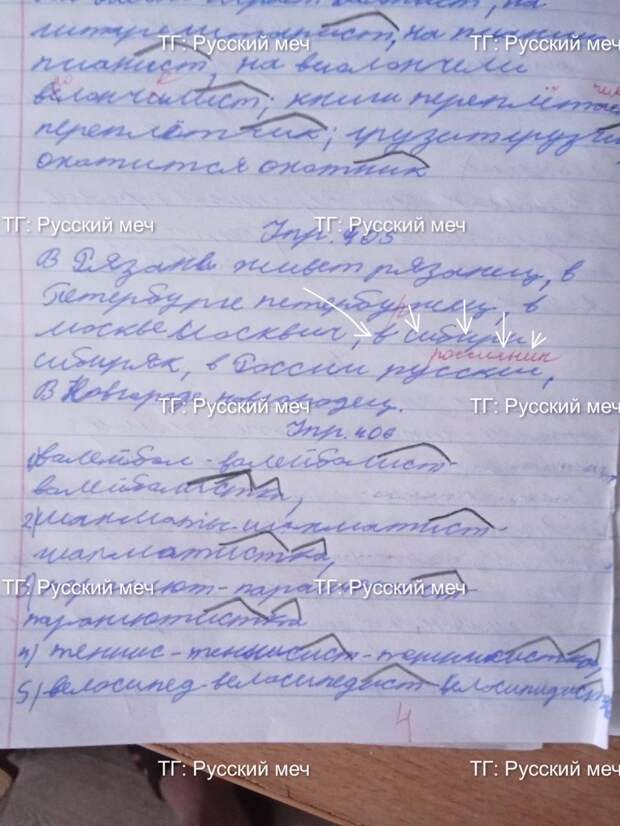 пианист, на виолончели
виолончилист; книги переплёт
переплётчик; грузит грузчи
охотится охотник
Упр. 405
В Рязани живет рязанец, в
Петербурге петербуржец. в
москве москвич, в сибири
россиянин
сибиряк, в России русский,
В Новгороде
Упр. 406
1) валейбол - валейболист -
валейболистка,
2) шахматы - шахматист -
шахматистка,
3) парашют - парашютист -
парашютистка
4) теннис - теннисист - теннисистка
5) велосипед - велосипедист - велосипидистка
4
ТГ: Русский меч ТГ: Русский меч
ТГ: Русский меч ТГ: Русский меч
ТГ: Русский меч ТГ: Русский меч
ТГ: Русский меч ТГ: Русский меч
ТГ: Русский меч ТГ: Русский меч